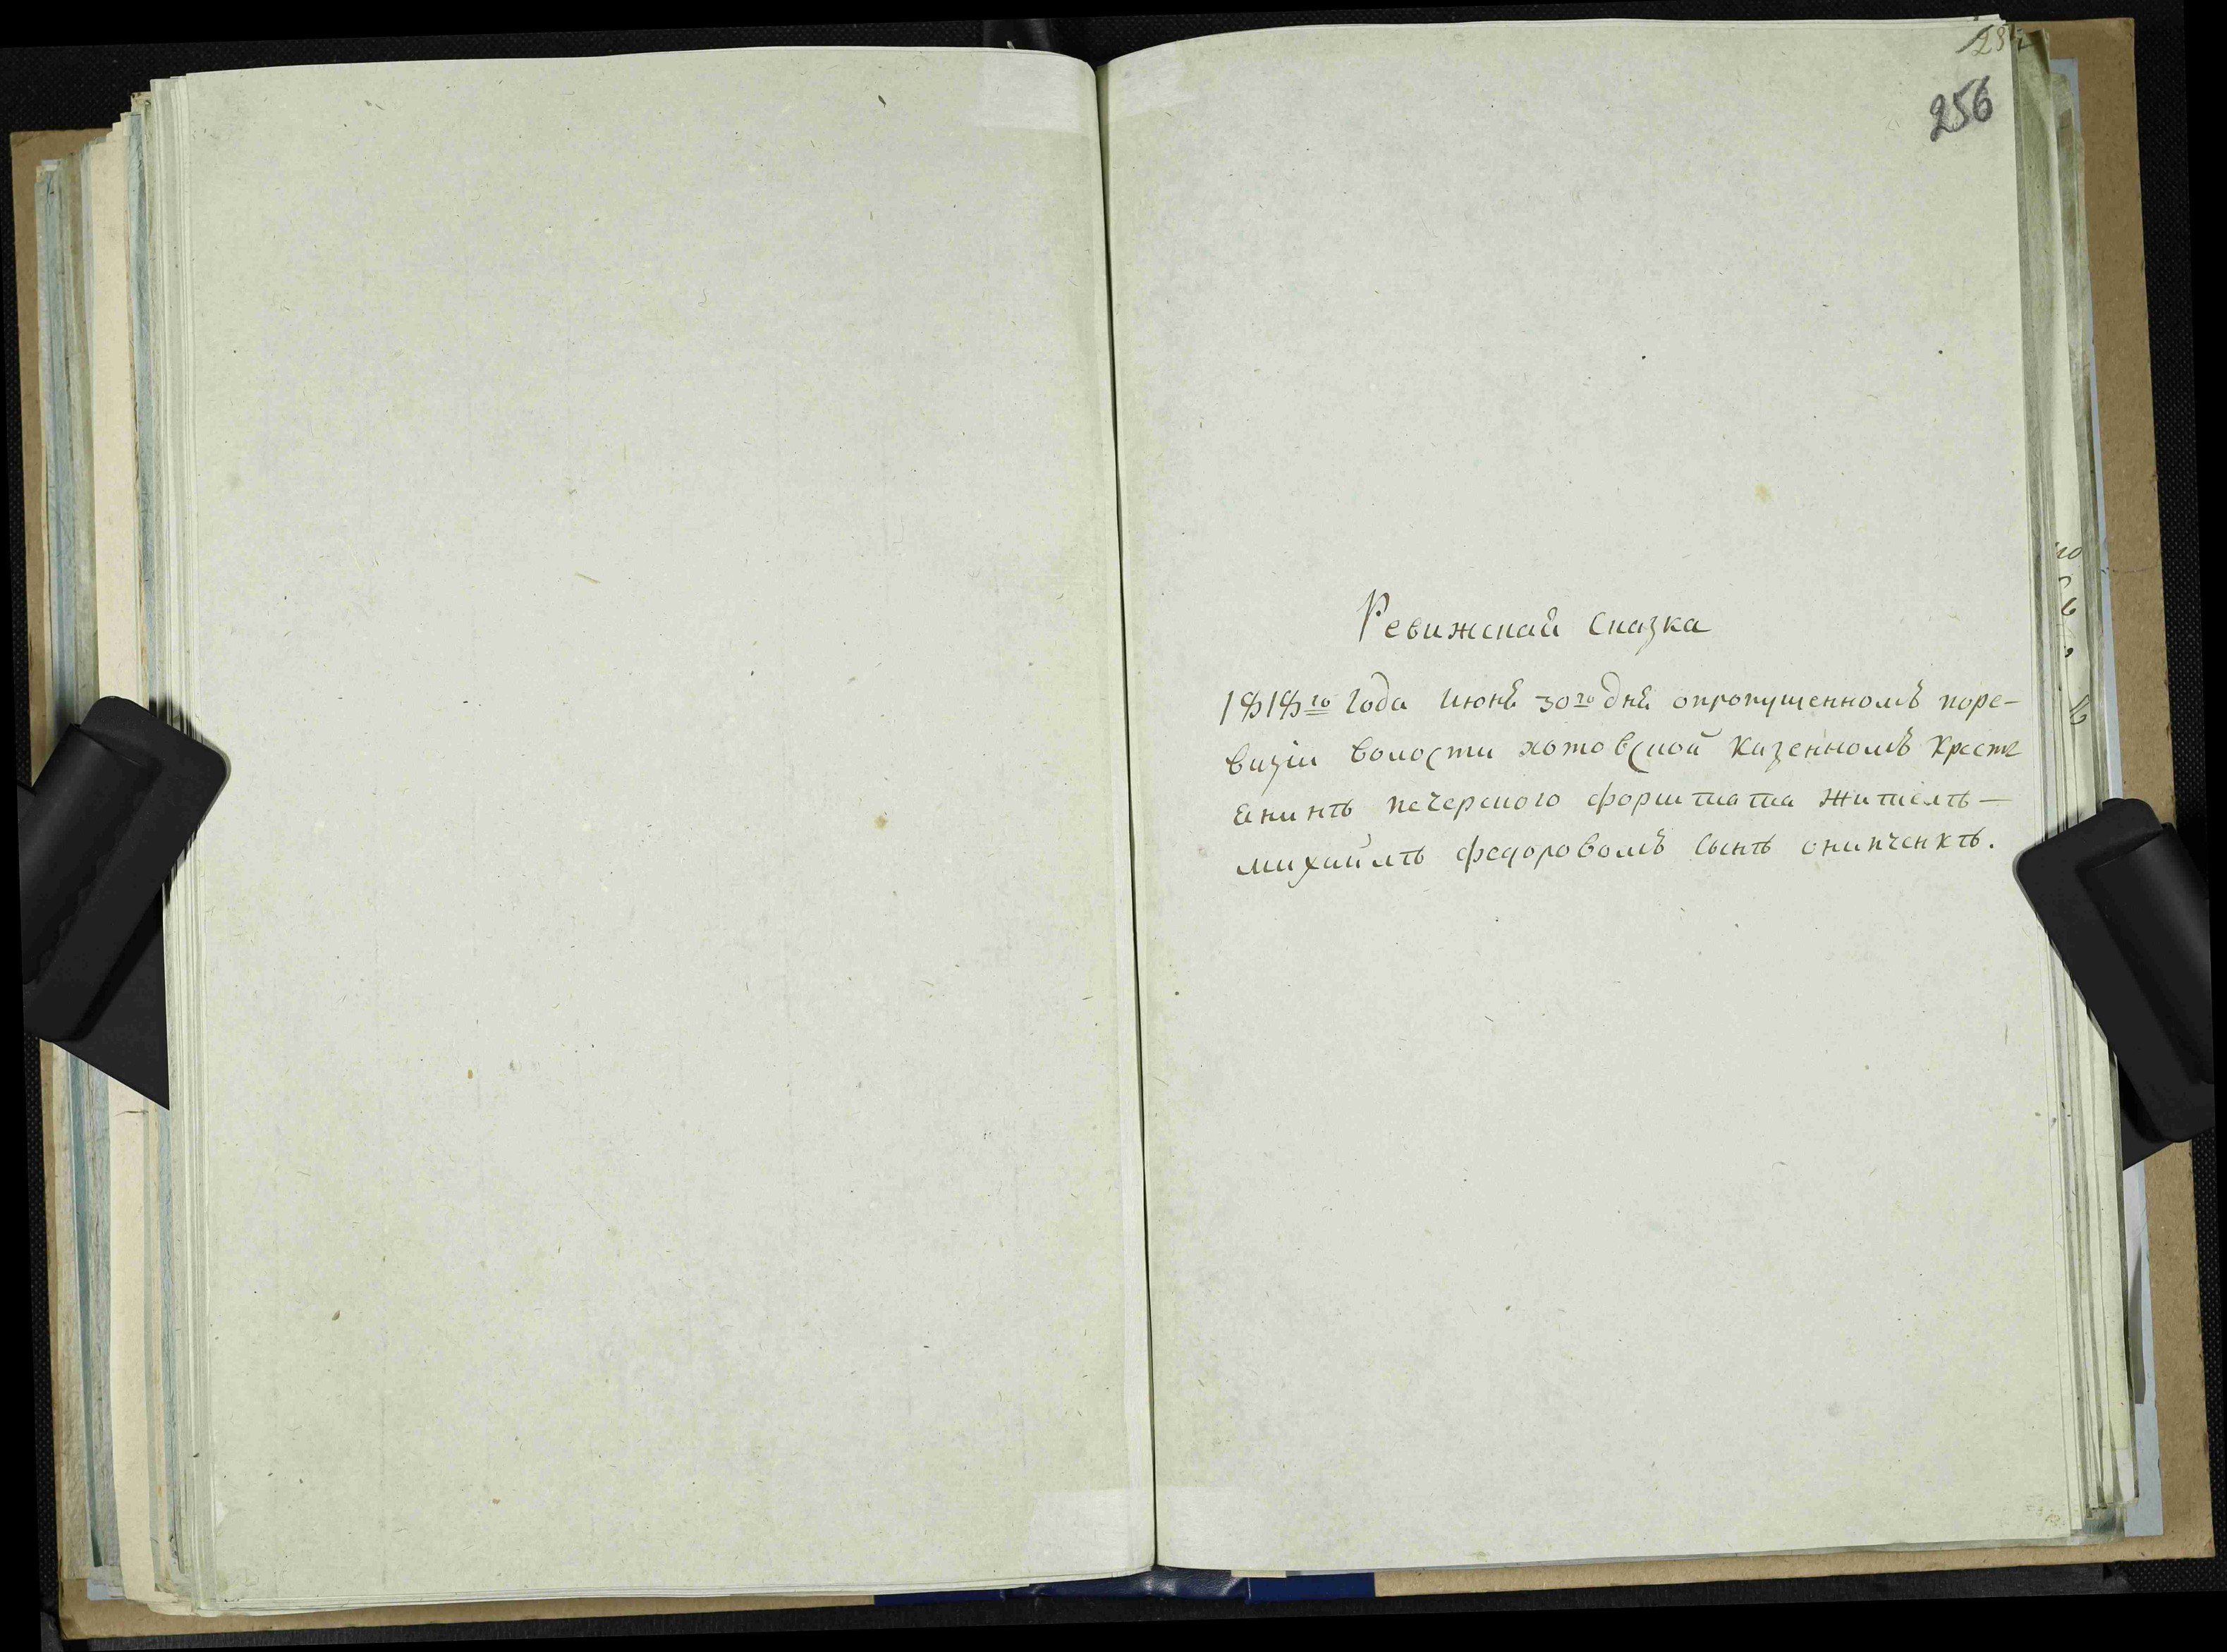 256
Ревижская сказка
1818го года июнѣ 30го днѣ опропущенномъ поре-
визіи волости хотовской казенномъ крестъ
ѣнинъ печерского форштата жителъ-
михайлъ федоровомъ сынъ онипченкъ.